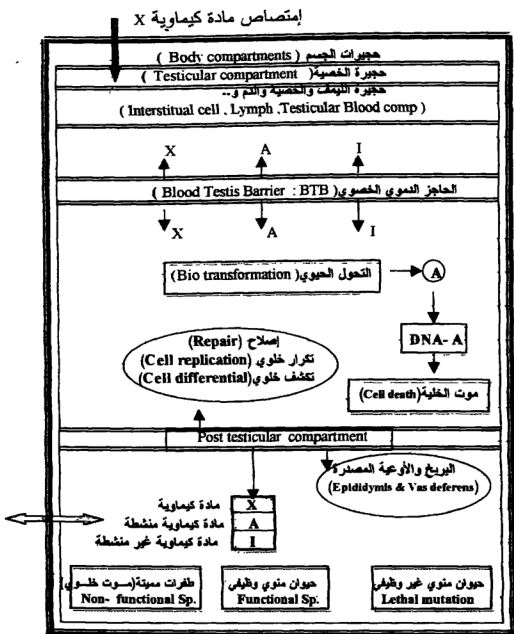 إمتصاص مادة كيماوية X
حجيرات الجسم ( Body compartments )
حجيرة الخصية( Testicular compartment )
حجيرة الليمف والخصية والدم و..
( Interstitual cell , Lymph ,Testicular Blood comp )
X A I
الحاجز الدموي الخصوي( Blood Testis Barrier : BTB )
X A I
التحول الحيوي( Bio transformation) A
إصلاح (Repair)
تكرار خلوي (Cell replication)
تكشف خلوي(Cell differential)
DNA- A
موت الخلية(Cell death)
Post testicular compartment
البربخ والأوعية المصدرة
(Epididymis & Vas deferens)
مادة كيماوية X
مادة كيماوية منشطة A
مادة كيماوية غير منشطة I
طفرات مميتة(موت خلوي)
Non- functional Sp.
حيوان منوي وظيفي
Functional Sp.
حيوان منوي غير وظيفي
Lethal mutation